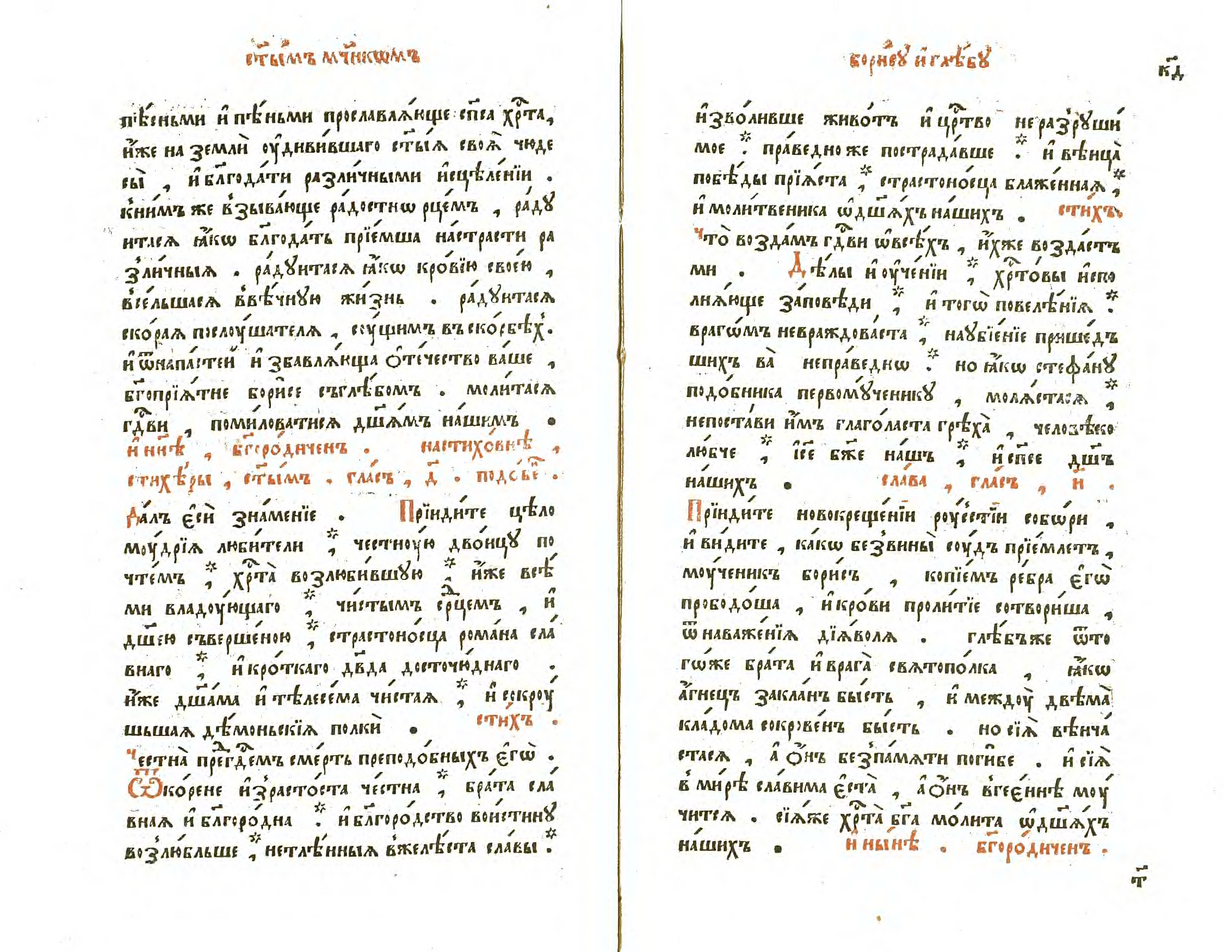 ст҃ы́мъ мч҃нкѡмъ
пѣ́сньми и҆ пѣ́ньми прославлѧ́юще сп҃са хр҃та̀,
и҆́же на землѝ ѹ҆диви́вшаго ст҃ы́ѧ своѧ̀ чюде
сы̀ , и҆ бл҃года́ти разли́чными и҆сцѣле́нїи .
кни́мъ же взыва́юще ра́достнѡ рце́мъ , ра́дꙋ
итасѧ ꙗ҆́кѡ бл҃года́ть прїе́мша на́страсти ра
зли́чныѧ . ра́дꙋитасѧ ꙗ҆́кѡ кро́вїю свое́ю ,
все́льшасѧ в вѣ́чнꙋю жи́знь . ра́дꙋитасѧ
ско́раѧ послѹ́шателѧ , сѹ́щимъ въ ско́рбѣх .
и҆ ѿ напа́стей и҆збавлѧ́юща ѻ҆те́чество ва́ше ,
бг҃опрїѧ́тне бори́се съглѣ́бомъ . моли́тасѧ
гд҇ви , поми́ловатисѧ дш҃а́мъ на́шимъ .
и҆ ны́нѣ , бг҃оро́диченъ . настихо́внѣ ,
стихѣ́ры , ст҃ы́мъ . гла́съ , д҃ . подо́бе .
Да́лъ є҆сѝ зна́менїе . Прїиди́те цѣ́ло
мѹ́дрїѧ люби́тели , честнѹ́ю двои́цꙋ по
чте́мъ , хр҃та̀ возлюби́вшꙋю , и҆́же всѣ́
ми владѹ́ющаго , чи́стымъ ср҃цемъ , и҆
дш҃е́ю съверше́ною , страстоно́сца рома́на сла́
внаго , и҆ кро́ткаго дв҃да досточю́днаго .
и҆́же дш҃а́ма и҆ тѣлесе́ма чи́стаѧ , и҆ сокрѹ
шьшаѧ дѣ́моньскїѧ полкѝ . сти́хъ .
Честна̀ пред̾ гд҇емъ сме́рть преподо́бныхъ є҆гѡ̀ .
Ѿ ко́рене и҆зрасто́ста че́стна , бра́та сла́
внаѧ и҆ бл҃горо́дна . и҆ бл҃горо́дство вои́стинꙋ
возлю́бльше , нетлѣ́нныѧ вжелѣ́ста сла́вы .
бори́сꙋ и҆ глѣ́бꙋ
к҃д
и҆зво́ливше живо́тъ и҆ цр҇тво неразрꙋши́
мое . пра́ведно же пострада́вше . и҆ вѣнца̀
побѣ́ды прїѧ́ста , страстоно́сца блаже́ннаѧ ,
и҆ моли́твеника ѡ҆ дш҃а́хъ на́шихъ . сти́хъ .
Что̀ возда́мъ гд҇ви ѡ҆ всѣ́хъ , и҆́хже возда́стъ
ми . Дѣ́лы и҆ ѹ҆че́нїи , хр҃то́вы и҆спо
лнѧ́юще за́повѣди , и҆ того̀ повелѣ́нїѧ .
враго́мъ невраждова́ста , на ѹ҆бїе́нїе прише́дъ
шихъ ва̀ непра́веднѡ . но ꙗ҆́кѡ стефа́нꙋ
подо́бника первомꙋ́ченикꙋ , молѧ́стасѧ ,
непоста́ви и҆̀мъ глаго́ласта грѣха̀ , человѣ́ко
лю́бче , і҆се бж҃е на́шъ , и҆ сп҃се дш҃ъ
на́шихъ . сла́ва , гла́съ , и҃ .
Прїиди́те новокреще́нїи рѹ́стїи собо́ри ,
и҆ ви́дите , ка́кѡ безвины̀ сѹ́дъ прїе́млетъ ,
мѹ́ченикъ бори́съ , копїе́мъ ре́бра є҆гѡ̀
прободо́ша , и҆ кро́ви проли́тїе сотвори́ша ,
ѿ наважде́нїѧ дїѧ́волѧ . глѣ́бъ же ѿ то
го́же бра́та и҆ врага̀ свѧтопо́лка , ꙗ҆́кѡ
а҆́гнецъ закла́нъ бы́сть , и҆ междѹ̀ двѣма̀
кла́дома сокрове́нъ бы́сть . но сїѧ̀ вѣнча́
стасѧ , а҆ ѻ҆́нъ безпа́мѧти поги́бе . и҆ сїѧ̀
в ми́рѣ сла́вима є҆ста̀ , а҆ ѻ҆́нъ вгее́ннѣ мѹ́
читсѧ . сїѧ́же хр҃та̀ бг҃а мо́лита ѡ҆ дш҃а́хъ
на́шихъ . и҆ ны́нѣ . бг҃оро́диченъ .
т҃